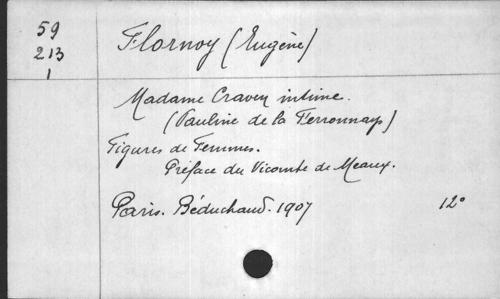 59
213
1
Flornoy (Eugène)
Madame Craven intime.
(Pauline de la Ferronnays)
Figures de Femmes.
Préface du Vicomte de Meaux.
Paris. Béduchaud. 1907 12°